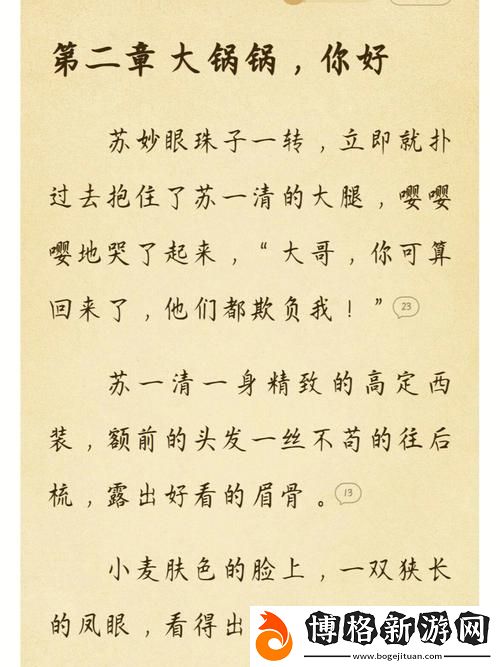 第二章 大锅锅，你好
苏妙眼珠子一转，立即就扑
过去抱住了苏一清的大腿，嘤嘤
嘤地哭了起来，“大哥，你可算
回来了，他们都欺负我！”
23
苏一清一身精致的高定西
装，额前的头发一丝不苟的往后
梳，露出好看的眉骨。
13
小麦肤色的脸上，一双狭长
的凤眼，看得出
博格新游网
www.bogejituan.com